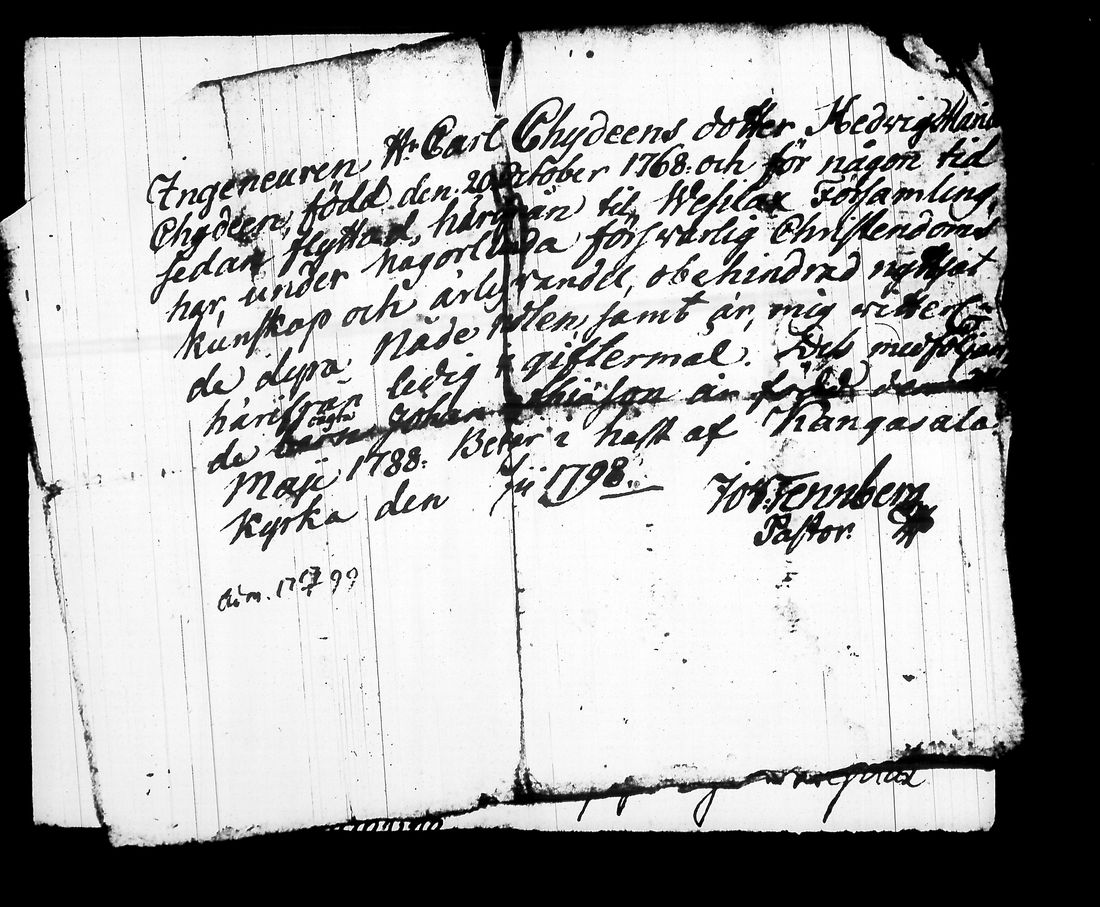 Ingeneuren Hr Carl Chydeens dotter Hedwig Maria
Chydeen, född den 20 October 1768: och för någon tid
sedan flyttad, härifrån til Wesilax Församling,
har, under någorlunda försvarlig Christendoms
kunskap och ärlig vandel, obehindrad nyttjat
de dyra Nåde mdlen, samt är, mig witterl:
härifrån ledig t giftermål. Des medföljan
de oägta barn Johan Mathiäson är född den
Maji 1788. Betyr i hast af Kangasala
Kyrka den Jii 1798.
Joh: Fennberg
Pastor.
Adm. 17 99